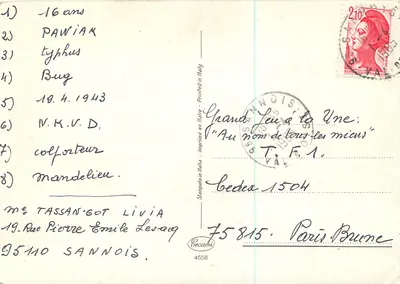 1) 16 ans
2) PAWIAK
3) typhus
4) Bug
5) 19.4.1943
6) N.K.V.D.
7) colporteur
8) Mandelieu.
Me TASSAN-GOT LIVIA
19. Rue Pierre Emile
95110 SANNOIS
Stampato in Italia - Imprimé en Italie - Printed in Italy
Cecami
4558
2,10
SANNOIS
Grand Jeu à la Une:
"Au nom de tous les miens"
T. F. 1.
Cedex 1504
75815. Paris Brune